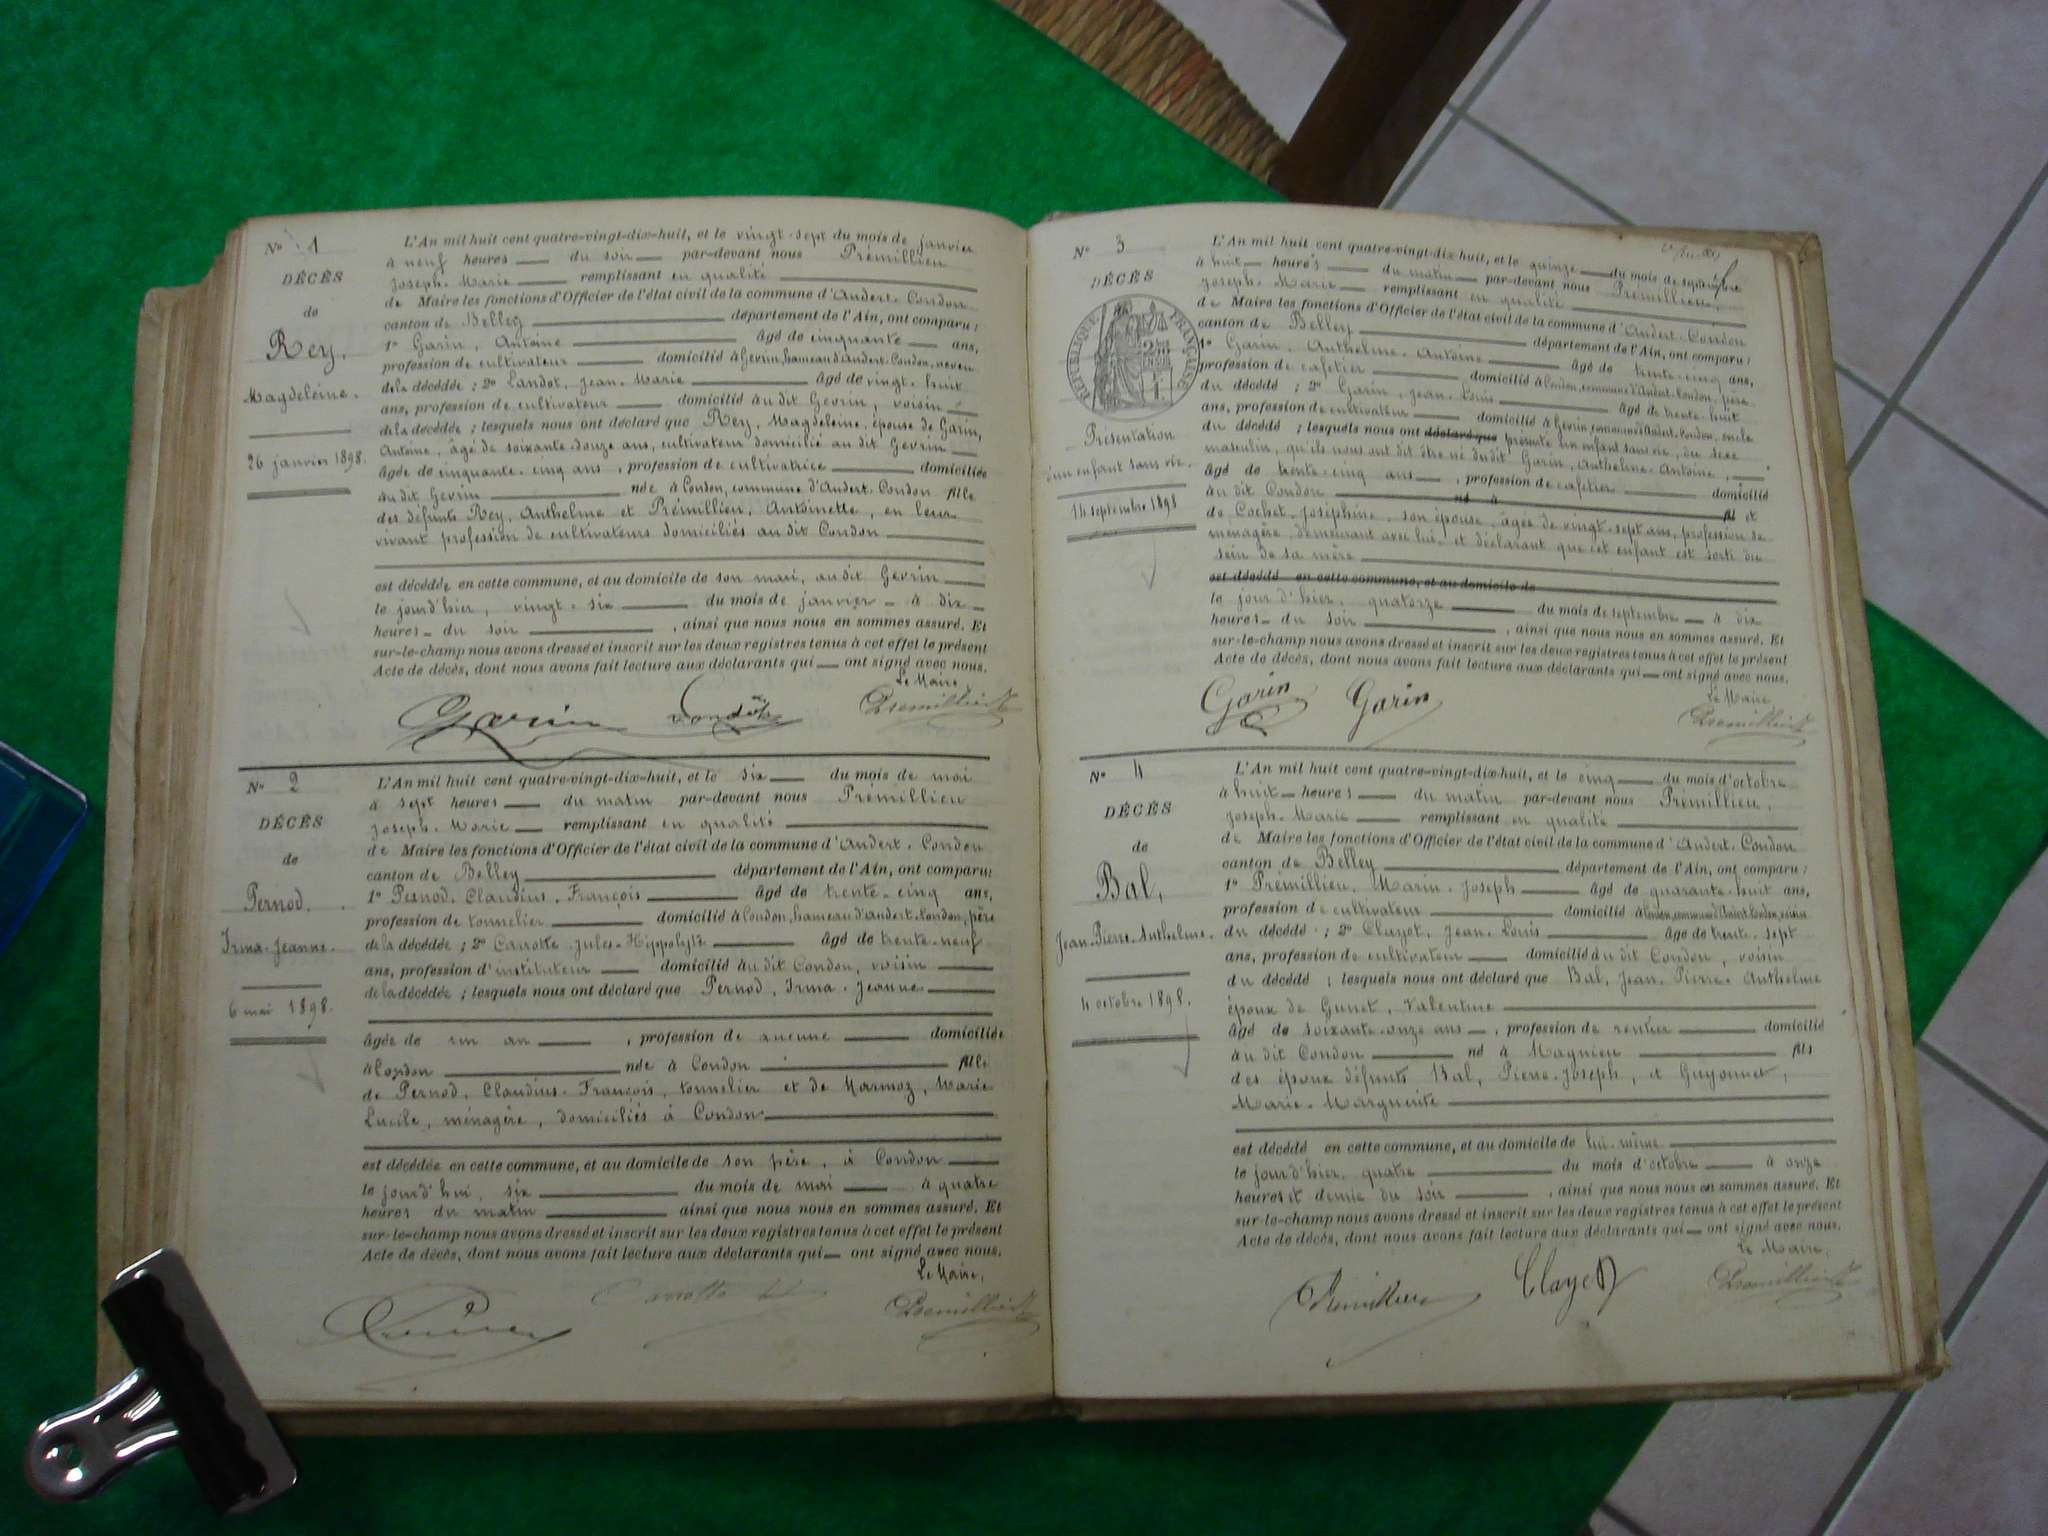 N° 1
DÉCÈS
de
Rey,
Magdeleine.
26 janvier 1898.
L'An mil huit cent quatre-vingt-dix-huit, et le vingt-sept du mois de janvier
à neuf heures du soir par-devant nous Prémillieu
Joseph-Marie remplissant en qualité
de Maire les fonctions d'Officier de l'état civil de la commune d'Andert-Condon
canton de Belley département de l'Ain, ont comparu :
1° Garin, Antoine âgé de cinquante ans,
profession de cultivateur domicilié à Gevrin, hameau d'Andert-Condon, neveu
de la décédée ; 2° Landot, Jean-Marie âgé de vingt-huit
ans, profession de cultivateur domicilié au dit Gevrin, voisin
de la décédée ; lesquels nous ont déclaré que Rey, Magdeleine, épouse de Garin,
Antoine, âgé de soixante-douze ans, cultivateur domicilié au dit Gevrin
âgée de cinquante-cinq ans, profession de cultivatrice domiciliée
au dit Gevrin née à Condon, commune d'Andert-Condon fille
des défunts Rey, Anthelme et Prémillieu, Antoinette, en leur
vivant profession de cultivateurs domiciliés au dit Condon
est décédée en cette commune, et au domicile de son mari, au dit Gevrin
le jour d'hier, vingt-six du mois de janvier à dix
heures du soir, ainsi que nous nous en sommes assuré. Et
sur-le-champ nous avons dressé et inscrit sur les deux registres tenus à cet effet le présent
Acte de décès, dont nous avons fait lecture aux déclarants qui ont signé avec nous.
Le Maire,
Garin Landot Premillieu
N° 2
DÉCÈS
de
Pernod.
Irma-Jeanne.
6 mai 1898.
L'An mil huit cent quatre-vingt-dix-huit, et le six du mois de mai
à sept heures du matin par-devant nous Prémillieu
Joseph-Marie remplissant en qualité
de Maire les fonctions d'Officier de l'état civil de la commune d'Andert-Condon
canton de Belley département de l'Ain, ont comparu :
1° Pernod, Claudius-François âgé de trente-cinq ans,
profession de tonnelier domicilié à Condon, hameau d'Andert-Condon, père
de la décédée ; 2° Carrotte Jules-Hippolyte âgé de trente-neuf
ans, profession d'instituteur domicilié au dit Condon, voisin
de la décédée ; lesquels nous ont déclaré que Pernod, Irma-Jeanne
âgée de un an, profession de aucune domiciliée
à Condon née à Condon fille
de Pernod, Claudius-François, tonnelier et de Marmoz, Marie
Lucile, ménagère, domiciliés à Condon
est décédée en cette commune, et au domicile de son père, à Condon
le jour d'hui, six du mois de mai à quatre
heures du matin ainsi que nous nous en sommes assuré. Et
sur-le-champ nous avons dressé et inscrit sur les deux registres tenus à cet effet le présent
Acte de décès, dont nous avons fait lecture aux déclarants qui ont signé avec nous.
Le Maire,
Carrotte Premillieu
N° 3
DÉCÈS
RÉPUBLIQUE FRANÇAISE
Présentation
d'un enfant sans vie.
14 septembre 1898
L'An mil huit cent quatre-vingt-dix-huit, et le quinze du mois de septembre
à huit heures du matin par-devant nous Prémillieu,
Joseph-Marie remplissant en qualité
de Maire les fonctions d'Officier de l'état civil de la commune d'Andert-Condon
canton de Belley département de l'Ain, ont comparu :
1° Garin, Anthelme-Antoine âgé de trente-cinq ans,
profession de cafetier domicilié à Condon, commune d'Andert-Condon, père
du décédé ; 2° Garin, Jean-Louis âgé de trente-huit
ans, profession de cultivateur domicilié à Gevrin, commune d'Andert-Condon, oncle
du décédé ; lesquels nous ont déclaré que présenté un enfant sans vie, du sexe
masculin, qu'ils nous ont dit être né du dit Garin, Anthelme-Antoine,
âgé de trente-cinq ans, profession de cafetier domicilié
au dit Condon né à fil et
de Cochet, Joséphine, son épouse, âgée de vingt-sept ans, profession de
ménagère, demeurant avec lui, et déclarant que cet enfant est sorti du
sein de sa mère
est décédé en cette commune, et au domicile de
le jour d'hier, quatorze du mois de septembre à dix
heures du soir, ainsi que nous nous en sommes assuré. Et
sur-le-champ nous avons dressé et inscrit sur les deux registres tenus à cet effet le présent
Acte de décès, dont nous avons fait lecture aux déclarants qui ont signé avec nous.
Le Maire
Garin Garin Premillieu
N° 4
DÉCÈS
de
Bal,
Jean-Pierre-Anthelme.
4 octobre 1898.
L'An mil huit cent quatre-vingt-dix-huit, et le cinq du mois d'octobre
à huit heures du matin par-devant nous Prémillieu,
Joseph-Marie remplissant en qualité
de Maire les fonctions d'Officier de l'état civil de la commune d'Andert-Condon
canton de Belley département de l'Ain, ont comparu :
1° Prémillieu, Marin-Joseph âgé de quarante-huit ans,
profession de cultivateur domicilié à Condon, commune d'Andert-Condon, voisin
du décédé ; 2° Clayet, Jean-Louis âgé de trente-sept
ans, profession de cultivateur domicilié au dit Condon, voisin
du décédé ; lesquels nous ont déclaré que Bal, Jean-Pierre-Anthelme
époux de Gunet, Valentine
âgé de soixante-onze ans, profession de rentier domicilié
au dit Condon né à Magnieu fils
des époux défunts Bal, Pierre-Joseph, et Guyonnet,
Marie-Marguerite
est décédé en cette commune, et au domicile de lui-même
le jour d'hier, quatre du mois d'octobre à onze
heures et demie du soir, ainsi que nous nous en sommes assuré. Et
sur-le-champ nous avons dressé et inscrit sur les deux registres tenus à cet effet le présent
Acte de décès, dont nous avons fait lecture aux déclarants qui ont signé avec nous.
Le Maire,
Prémillieu Clayet Premillieu